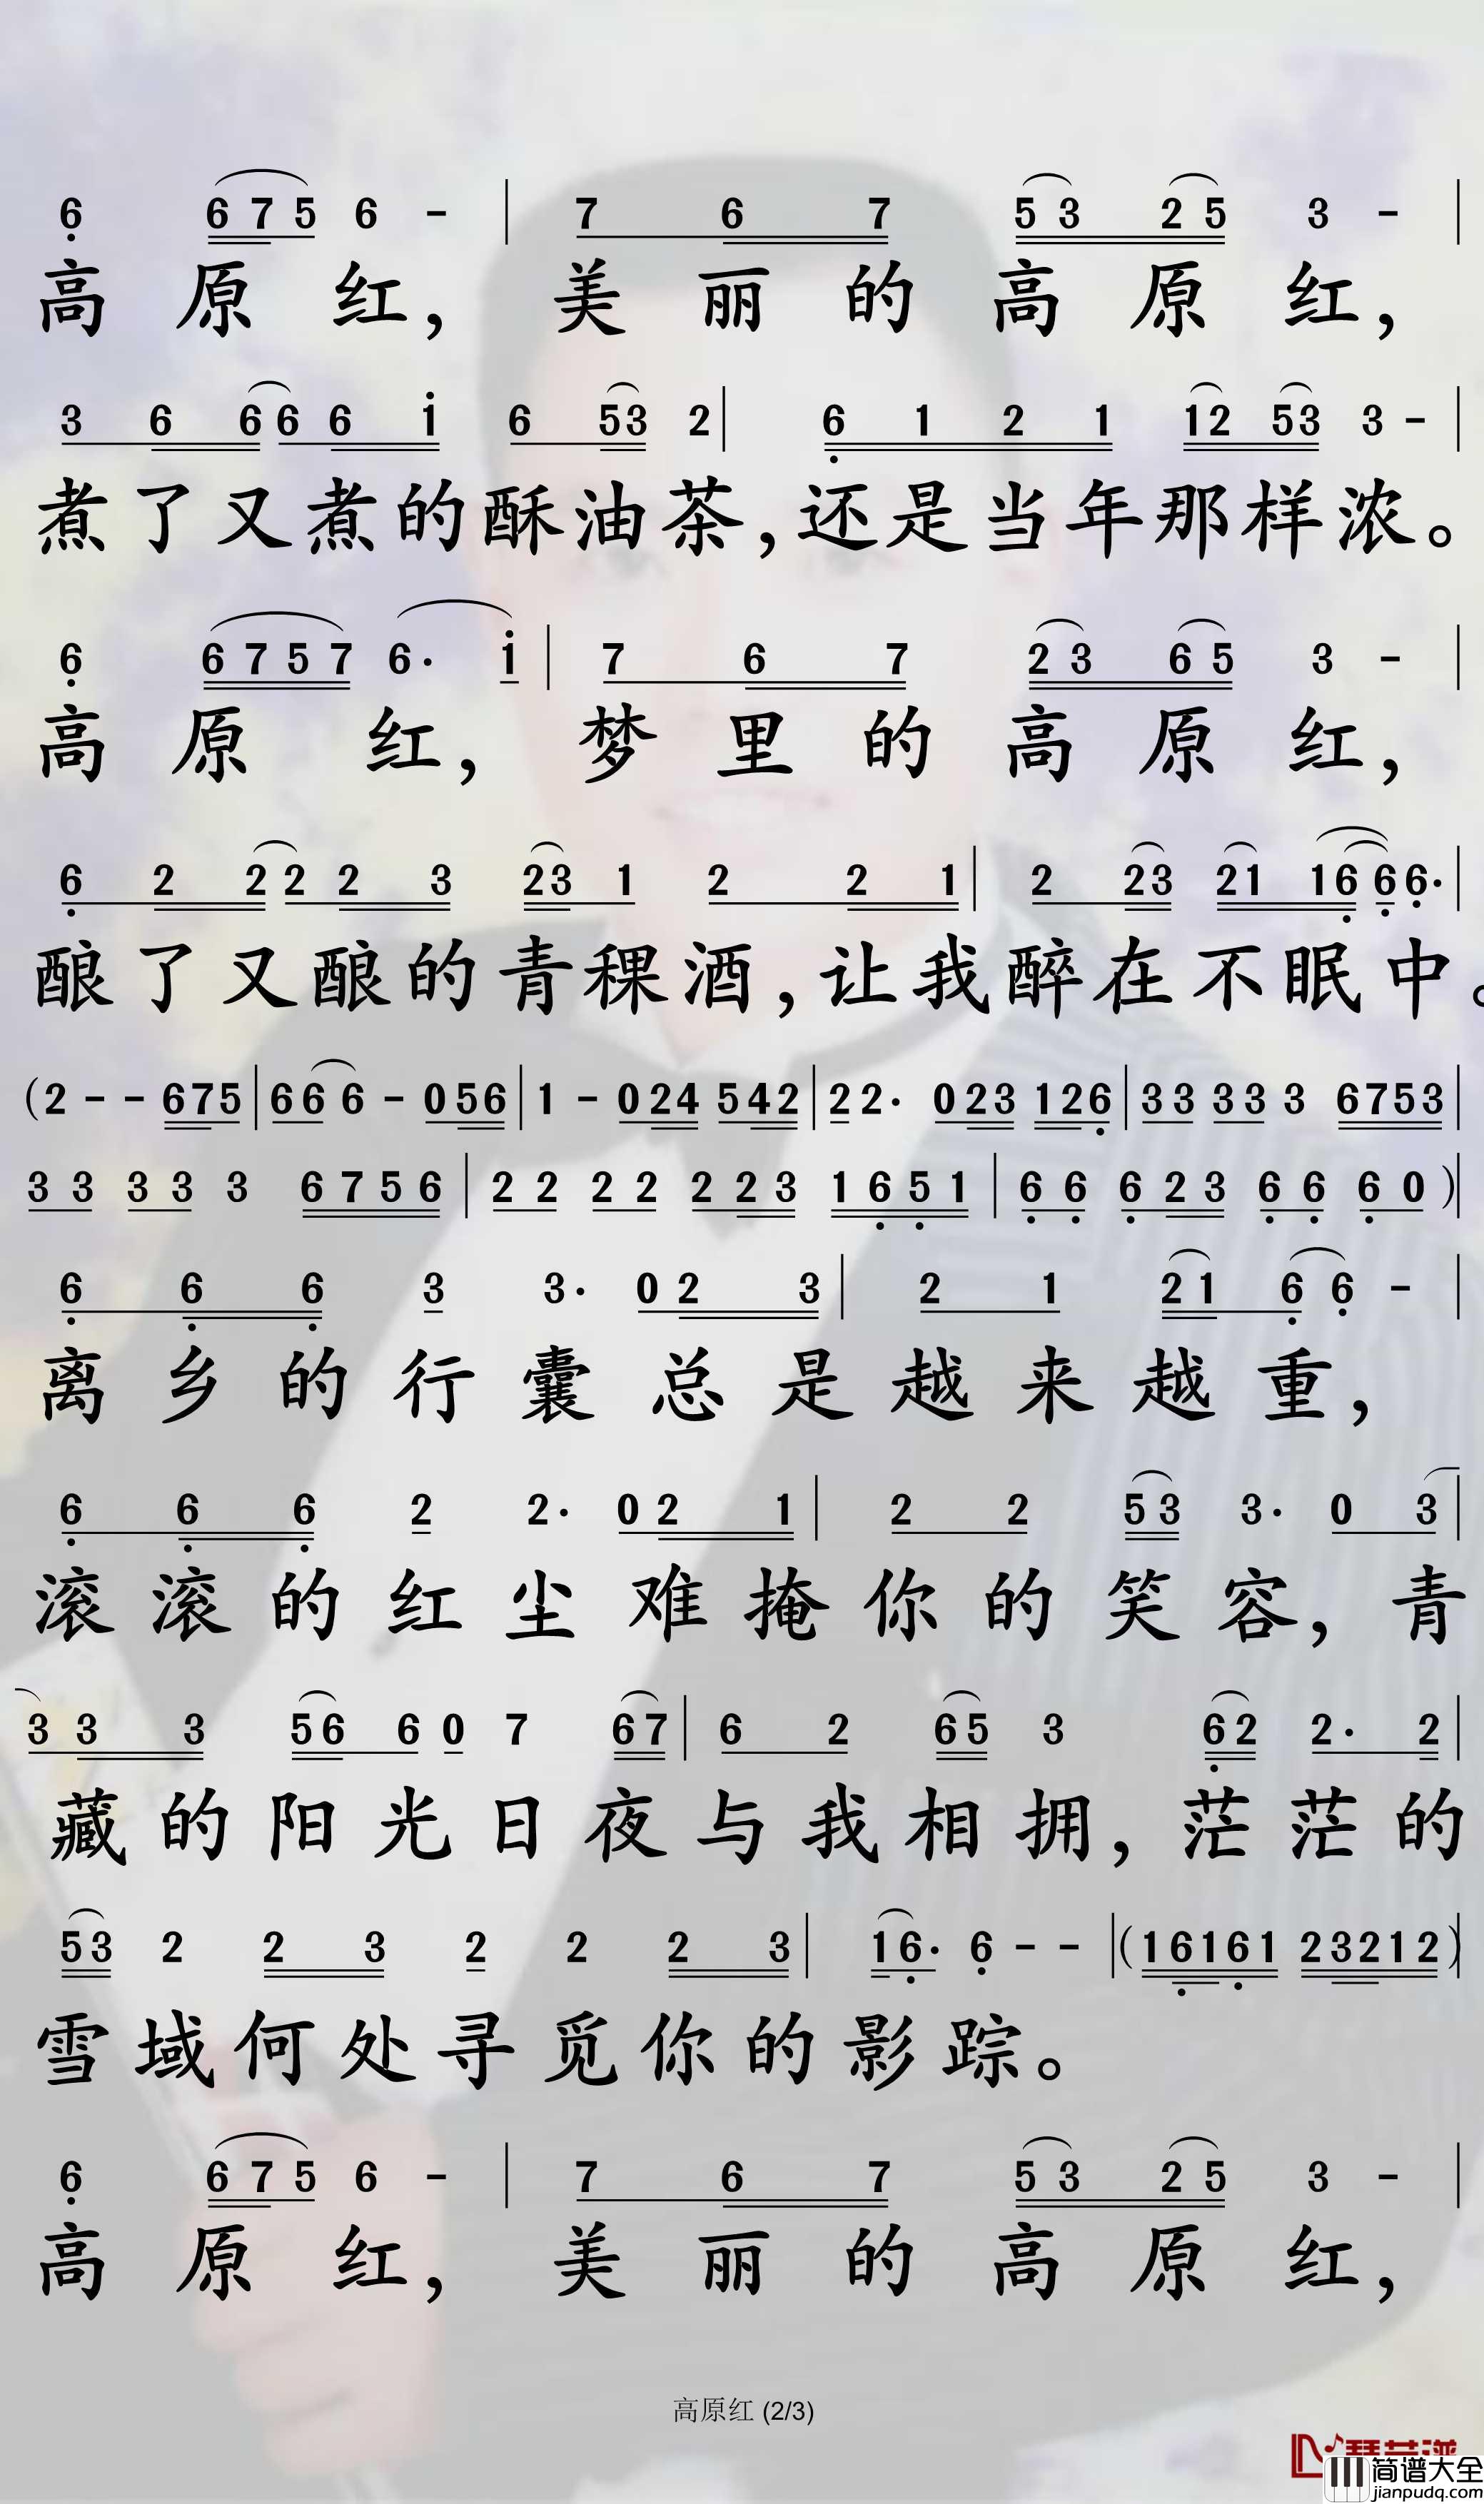 6 6 7 5 6 - | 7 6 7 5 3 2 5 3 - |
高 原 红， 美 丽 的 高 原 红，
3 6 6 6 6 i 6 5 3 2 | 6 1 2 1 1 2 5 3 3 - |
煮了又煮的酥油茶，还是当年那样浓。
6 6 7 5 7 6· i | 7 6 7 2 3 6 5 3 - |
高 原 红， 梦 里 的 高 原 红，
6 2 2 2 2 3 2 3 1 2 2 1 | 2 2 3 2 1 1 6 6 6· |
酿了又酿的青稞酒，让我醉在不眠中。
(2 - - 6 7 5 | 6 6 6 - 0 5 6 | 1 - 0 2 4 5 4 2 | 2 2· 0 2 3 1 2 6 | 3 3 3 3 3 6 7 5 3 |
3 3 3 3 3 6 7 5 6 | 2 2 2 2 2 2 3 1 6 5 1 | 6 6 6 2 3 6 6 6 0 )|
6 6 6 3 3· 0 2 3 | 2 1 2 1 6 6 - |
离乡的行囊总是越来越重，
6 6 6 2 2· 0 2 1 | 2 2 5 3 3· 0 3 |
滚滚的红尘难掩你的笑容，青
3 3 3 5 6 6 0 7 6 7 | 6 2 6 5 3 6 2 2· 2 |
藏的阳光日夜与我相拥，茫茫的
5 3 2 2 3 2 2 2 3 | 1 6· 6 - - |( 1 6 1 6 1 2 3 2 1 2 )|
雪域何处寻觅你的影踪。
6 6 7 5 6 - | 7 6 7 5 3 2 5 3 - |
高 原 红， 美 丽 的 高 原 红，
高原红 (2/3)
简谱大全
jianpudq.com